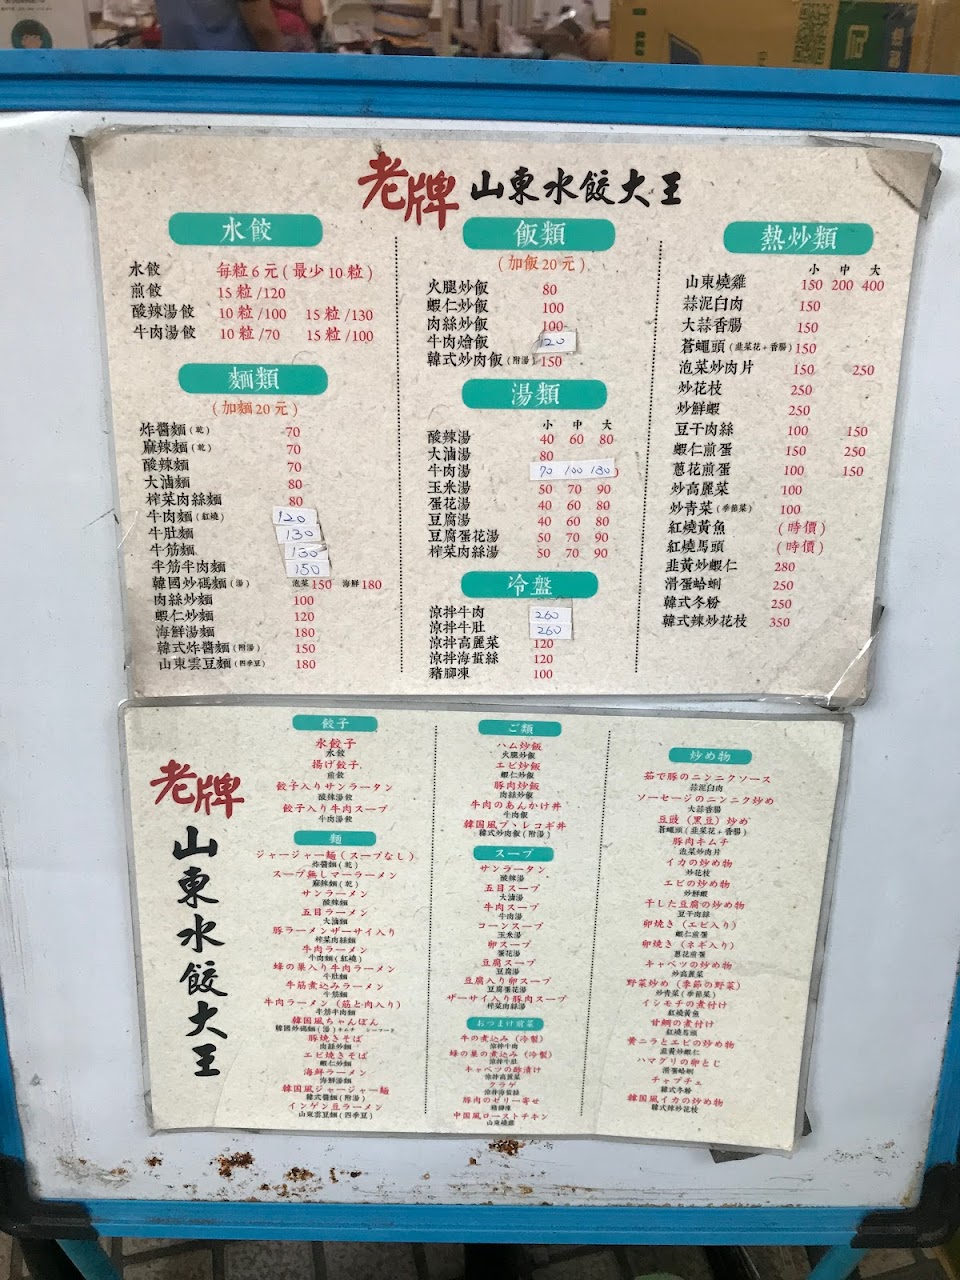 老牌 山東水餃大王
水餃
水餃 每粒6元(最少10粒)
煎餃 15粒/120
酸辣湯餃 10粒/100 15粒/130
牛肉湯餃 10粒/70 15粒/100
麵類
(加麵20元)
炸醬麵(乾) 70
麻辣麵(乾) 70
酸辣麵 70
大滷麵 80
榨菜肉絲麵 80
牛肉麵(紅燒) 120
牛肚麵 130
牛筋麵 130
半筋半肉麵 150
韓國炒碼麵(湯) 泡菜150 海鮮180
肉絲炒麵 100
蝦仁炒麵 120
海鮮湯麵 180
韓式炸醬麵(附湯) 150
山東雲豆麵(四季豆) 180
飯類
(加飯20元)
火腿炒飯 80
蝦仁炒飯 100
肉絲炒飯 100
牛肉燴飯 120
韓式炒肉飯(附湯) 150
湯類
小 中 大
酸辣湯 40 60 80
大滷湯 80
牛肉湯 70 100 130
玉米湯 50 70 90
蛋花湯 40 60 80
豆腐湯 40 60 80
豆腐蛋花湯 50 70 90
榨菜肉絲湯 50 70 90
冷盤
涼拌牛肉 260
涼拌牛肚 260
涼拌高麗菜 120
涼拌海蜇絲 120
豬腳凍 100
熱炒類
小 中 大
山東燒雞 150 200 400
蒜泥白肉 150
大蒜香腸 150
蒼蠅頭(韭菜花+香腸) 150
泡菜炒肉片 150 250
炒花枝 250
炒鮮蝦 250
豆干肉絲 100 150
蝦仁煎蛋 150 250
蔥花煎蛋 100 150
炒高麗菜 100
炒青菜(季節菜) 100
紅燒黃魚 (時價)
紅燒馬頭 (時價)
韭黃炒蝦仁 280
滑蛋蛤蜊 250
韓式冬粉 250
韓式辣炒花枝 350
老牌
山東水餃大王
餃子
水餃子
水餃
揚げ餃子
煎餃
餃子入りサンラータン
酸辣湯餃
餃子入り牛肉スープ
牛肉湯餃
麺
ジャージャー麺(スープなし)
炸醬麵(乾)
スープ無しマーラーメン
麻辣麵(乾)
サンラーメン
酸辣麵
五目ラーメン
大滷麵
豚ラーメンザーサイ入り
榨菜肉絲麵
牛肉ラーメン
牛肉麵(紅燒)
蜂の巣入り牛肉ラーメン
牛肚麵
牛筋煮込みラーメン
牛筋麵
牛肉ラーメン(筋と肉入り)
半筋半肉麵
韓国風ちゃんぽん
韓國炒碼麵(湯)
豚焼きそば
肉絲炒麵
エビ焼きそば
蝦仁炒麵
海鮮ラーメン
海鮮湯麵
韓国風ジャージャー麺
韓式醬麵(附湯)
インゲン豆ラーメン
山東雲豆麵(四季豆)
ご類
ハム炒飯
火腿炒飯
エビ炒飯
蝦仁炒飯
豚肉炒飯
肉絲炒飯
牛肉のあんかけ丼
牛肉飯
韓国風プ、レコギ丼
韓式炒肉飯(附湯)
スープ
サンラータン
酸辣湯
五目スープ
大滷湯
牛肉スープ
牛肉湯
コーンスープ
玉米湯
卵スープ
蛋花湯
豆腐スープ
豆腐湯
豆腐入り卵スープ
豆腐蛋花湯
ザーサイ入り豚肉スープ
榨菜肉絲湯
おつまけ前菜
牛の煮込み(冷製)
涼拌牛肉
蜂の巣の煮込み(冷製)
涼拌牛肚
キャベツの酢漬け
涼拌高麗菜
クラゲ
涼拌海蜇絲
豚肉のゼリー寄せ
豬腳凍
中国風ローストチキン
山東燒雞
炒め物
茹で豚のニンニクソース
蒜泥白肉
ソーセージのニンニク炒め
大蒜香腸
豆豉(黒豆)炒め
蒼蠅頭(韭菜花+香腸)
豚肉キムチ
泡菜炒肉片
イカの炒め物
炒花枝
エビの炒め物
炒鮮蝦
干した豆腐の炒め物
豆干肉絲
卵焼き(エビ入り)
蝦仁煎蛋
卵焼き(ネギ入り)
蔥花煎蛋
キャベツの炒め物
炒高麗菜
野菜炒め(季節の野菜)
炒青菜(季節菜)
イシモチの煮付け
紅燒黃魚
甘鯛の煮付け
紅燒馬頭
黄ニラとエビの炒め物
韭黃炒蝦仁
ハマグリの卵とじ
滑蛋蛤蜊
チャプチェ
韓式冬粉
韓国風イカの炒め物
韓式辣炒花枝